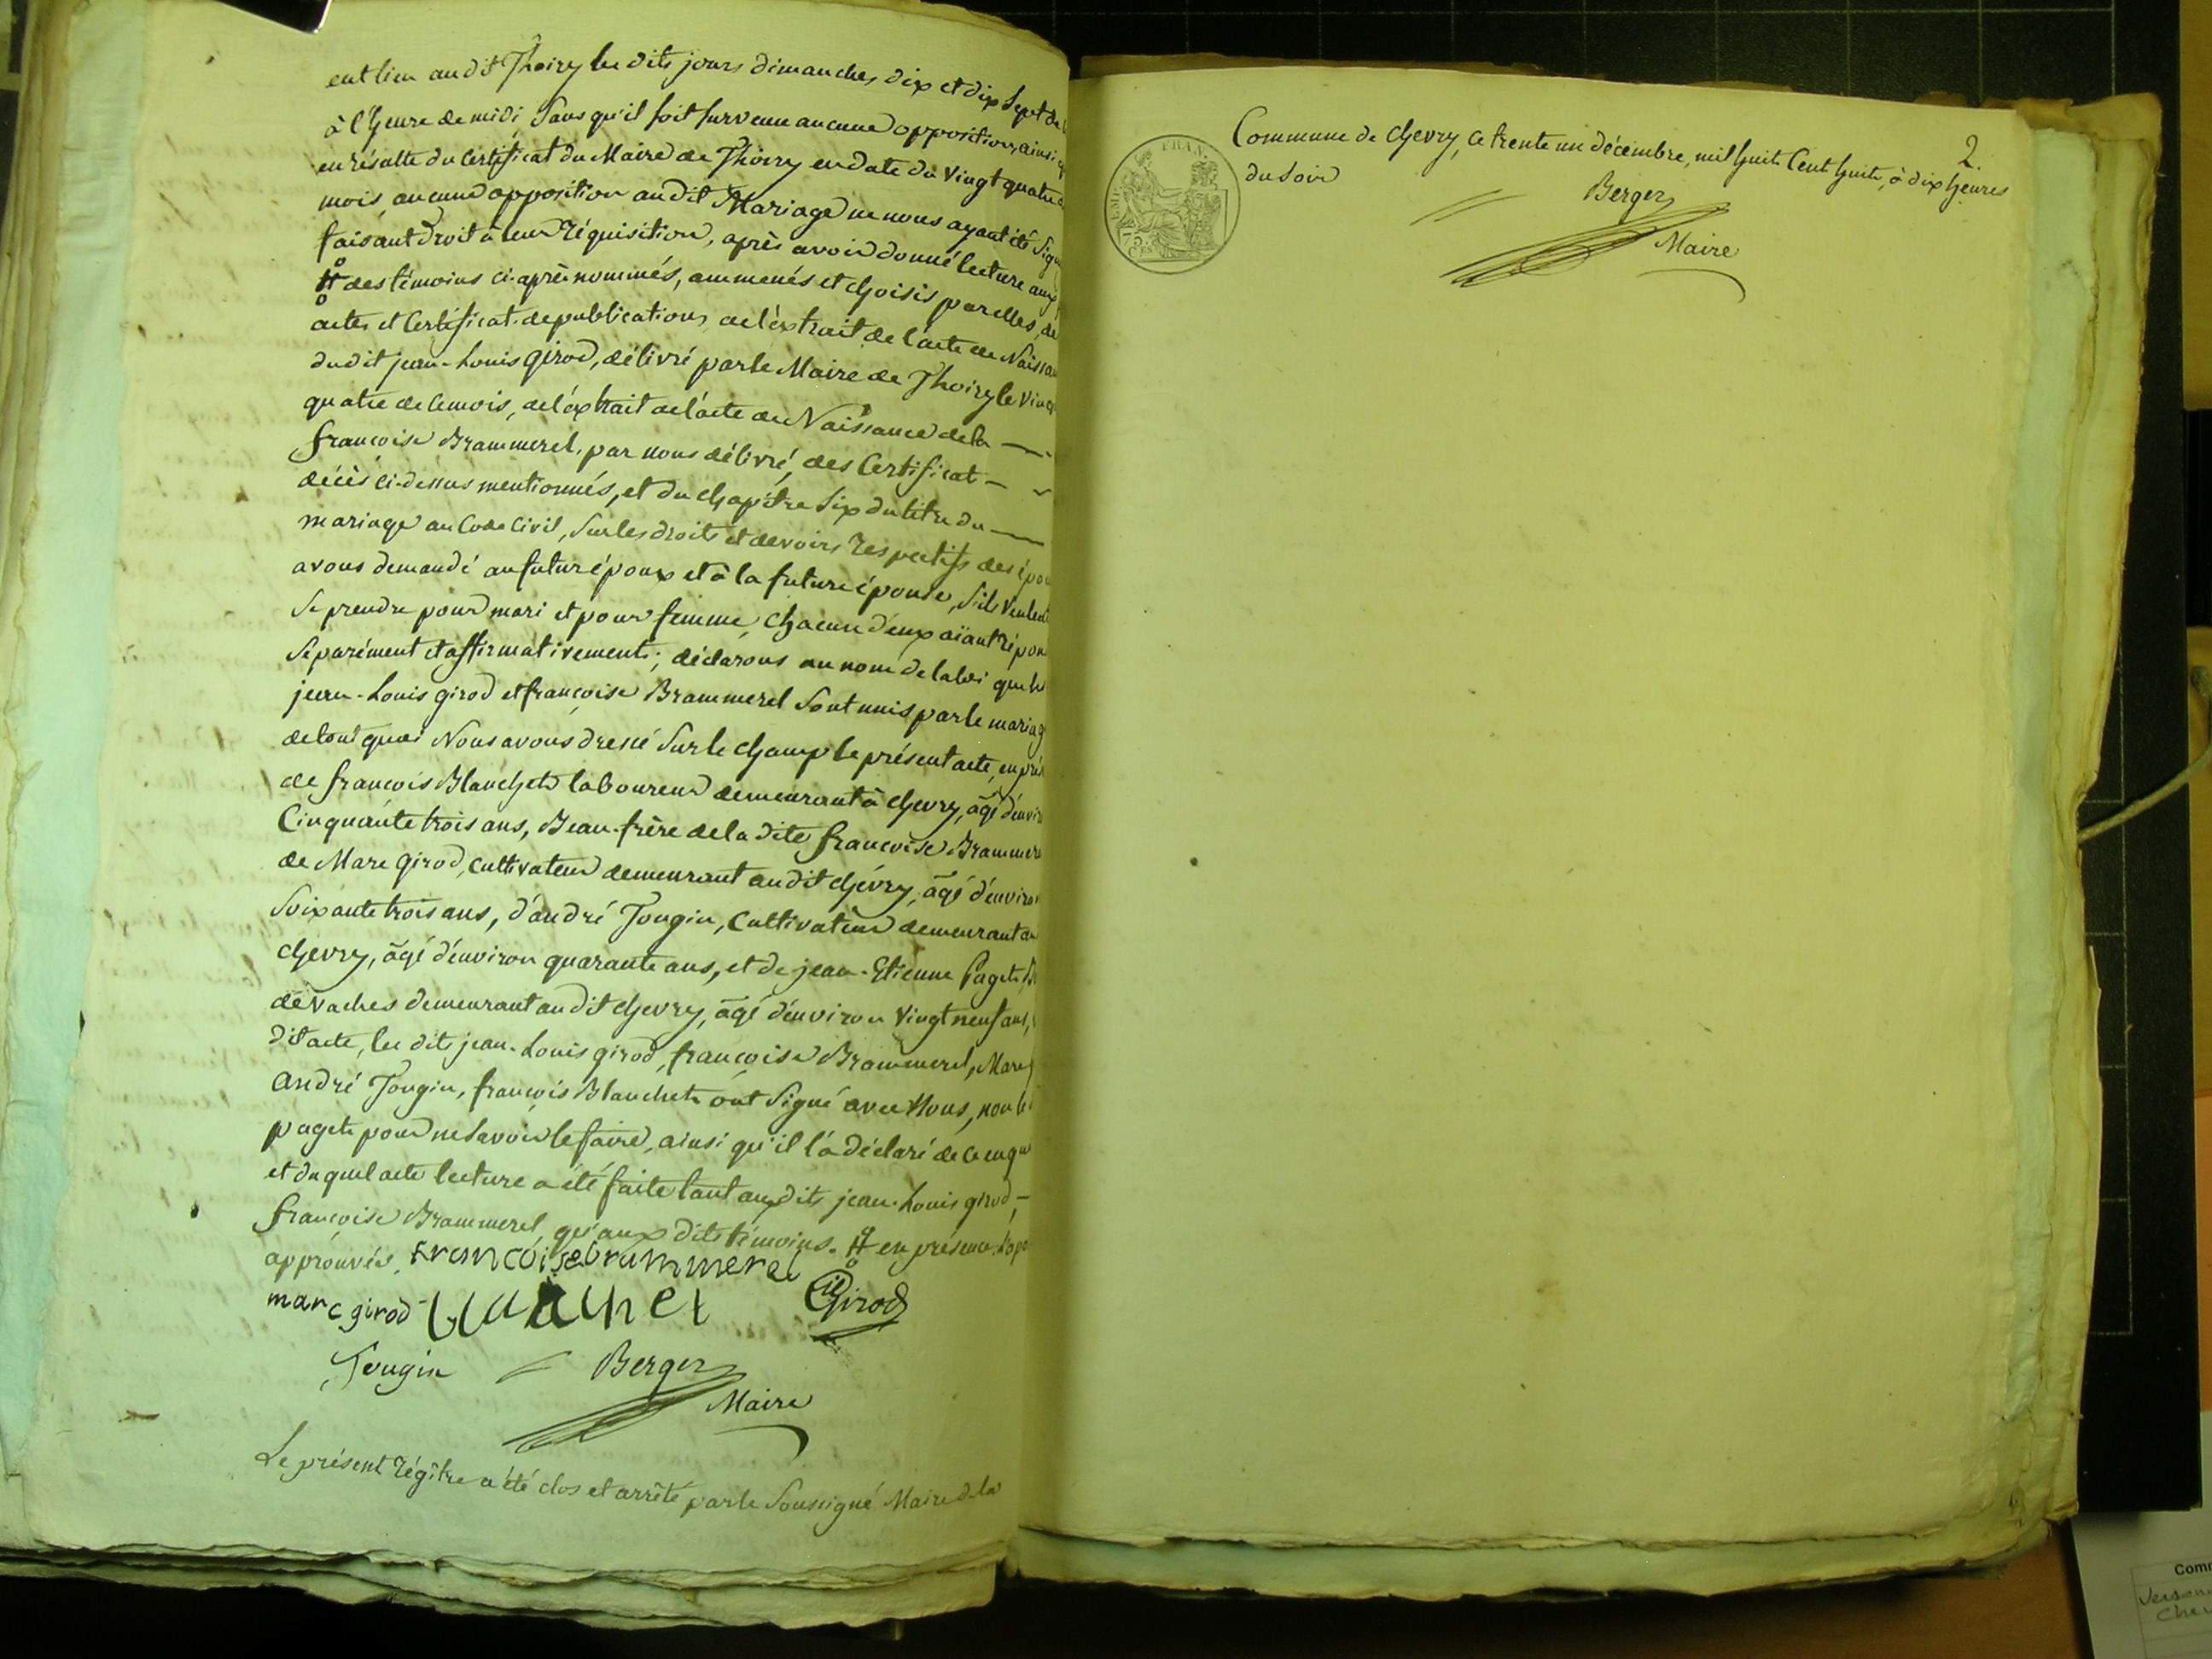 eut lieu au dit Thoiry les dits jours dimanches, dix et dix sept de
à l'heure de midi, Sans qu'il soit survenu aucune opposition, ainsi
en résulte du Certificat du Maire de Thoiry en date du vingt quatre
mois, aucune opposition au dit Mariage ne nous ayant été
faisant droit à leur réquisition, après avoir donné lecture aux
# des témoins ci-après nommés, ammenés et choisis par elles, de
actes et Certificat de publications, de l'éxtrait de l'acte de
du dit jean-Louis girod, délivré par le Maire de Thoiry le
quatre de ce mois, de l'éxtrait de l'acte de Naissance de la —
françoise Brammerel, par nous délivré, des Certificat —
décès ci-dessus mentionnés, et du chapitre Six du titre du —
mariage au Code Civil, Sur les droits et devoirs respectifs des
avons demandé au futur époux et à la future épouse, s'ils veulent
Se prendre pour mari et pour femme, chacun d'eux aïant
Séparément et affirmativement; déclarons au nom de la loi que
jean-Louis girod et françoise Brammerel Sont unis par le
de tout quoi Nous avons dressé Sur le champ le présent acte, en
de françois Blanchet laboureur demeurant à chevry, âgé
Cinquante trois ans, Beau-frère de la dite françoise
de Marc girod, cultivateur demeurant au dit chévry, âgé d'environ
Soixante trois ans, d'andré Tougin, Cultivateur demeurant
chevry, âgé d'environ quarante ans, et de jean-Etienne Paget,
de vaches demeurant au dit chevry, âgé d'environ vingt neuf ans,
dit acte, les dits jean-Louis girod, françoise Brammerel, Marc
andré Tougin, françois Blanchet ont Signé avec Nous, non le
paget pour ne savoir le faire, ainsi qu'il l'a déclaré de ce
et du quel acte lecture a été faite tant aux dits jean-Louis girod, —
françoise Brammerel, qu'aux dits témoins. # en présence
approuvés. francoise brammerel
marc girod Blachet Girod
Tougin Berger
Maire
Le présent régître a été clos et arrêté par le Soussigné Maire de la
2.
Commune de chevry, ce trente un décembre, mil huit Cent huit, à dix heures
du Soir
Berger
Maire
EMP. FRAN.
75 Ces
Com
Che